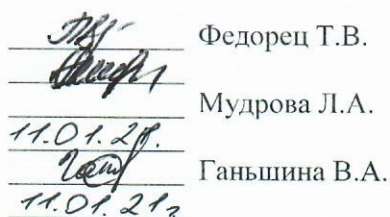 Федорец Т.В.
Мудрова Л.А.
11.01.21г.
Ганьшина В.А.
11.01.21г